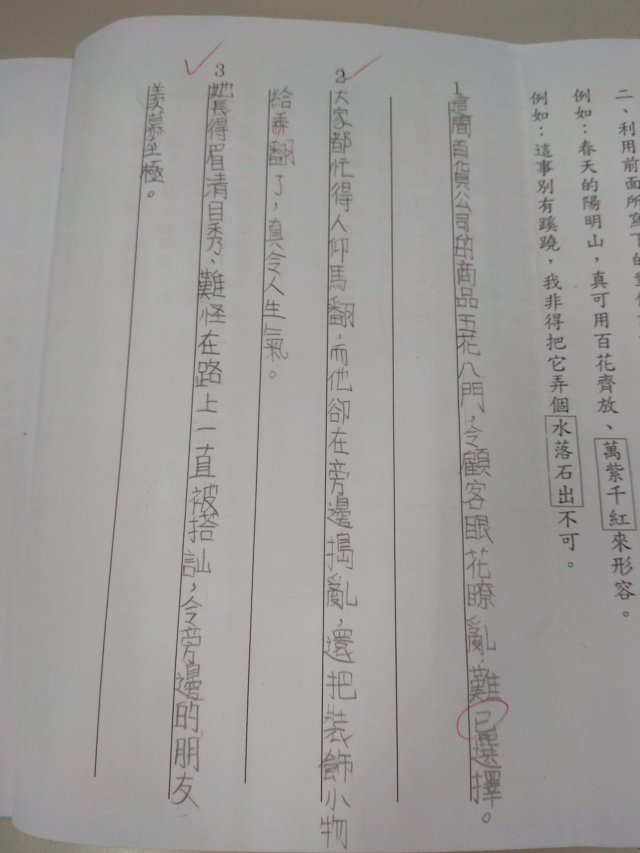 二、利用前面所寫下的
例如：春天的陽明山，真可用百花齊放、萬紫千紅來形容。
例如：這事別有蹊蹺，我非得把它弄個水落石出不可。
1這間百貨公司的商品五花八門，令顧客眼花瞭亂，難已選擇。
2大家都忙得人仰馬翻，而他卻在旁邊搗亂，還把裝飾小物
給弄翻了，真令人生氣。
3她長得眉清目秀、難怪在路上一直被搭訕，令旁邊的朋友
羨慕至極。